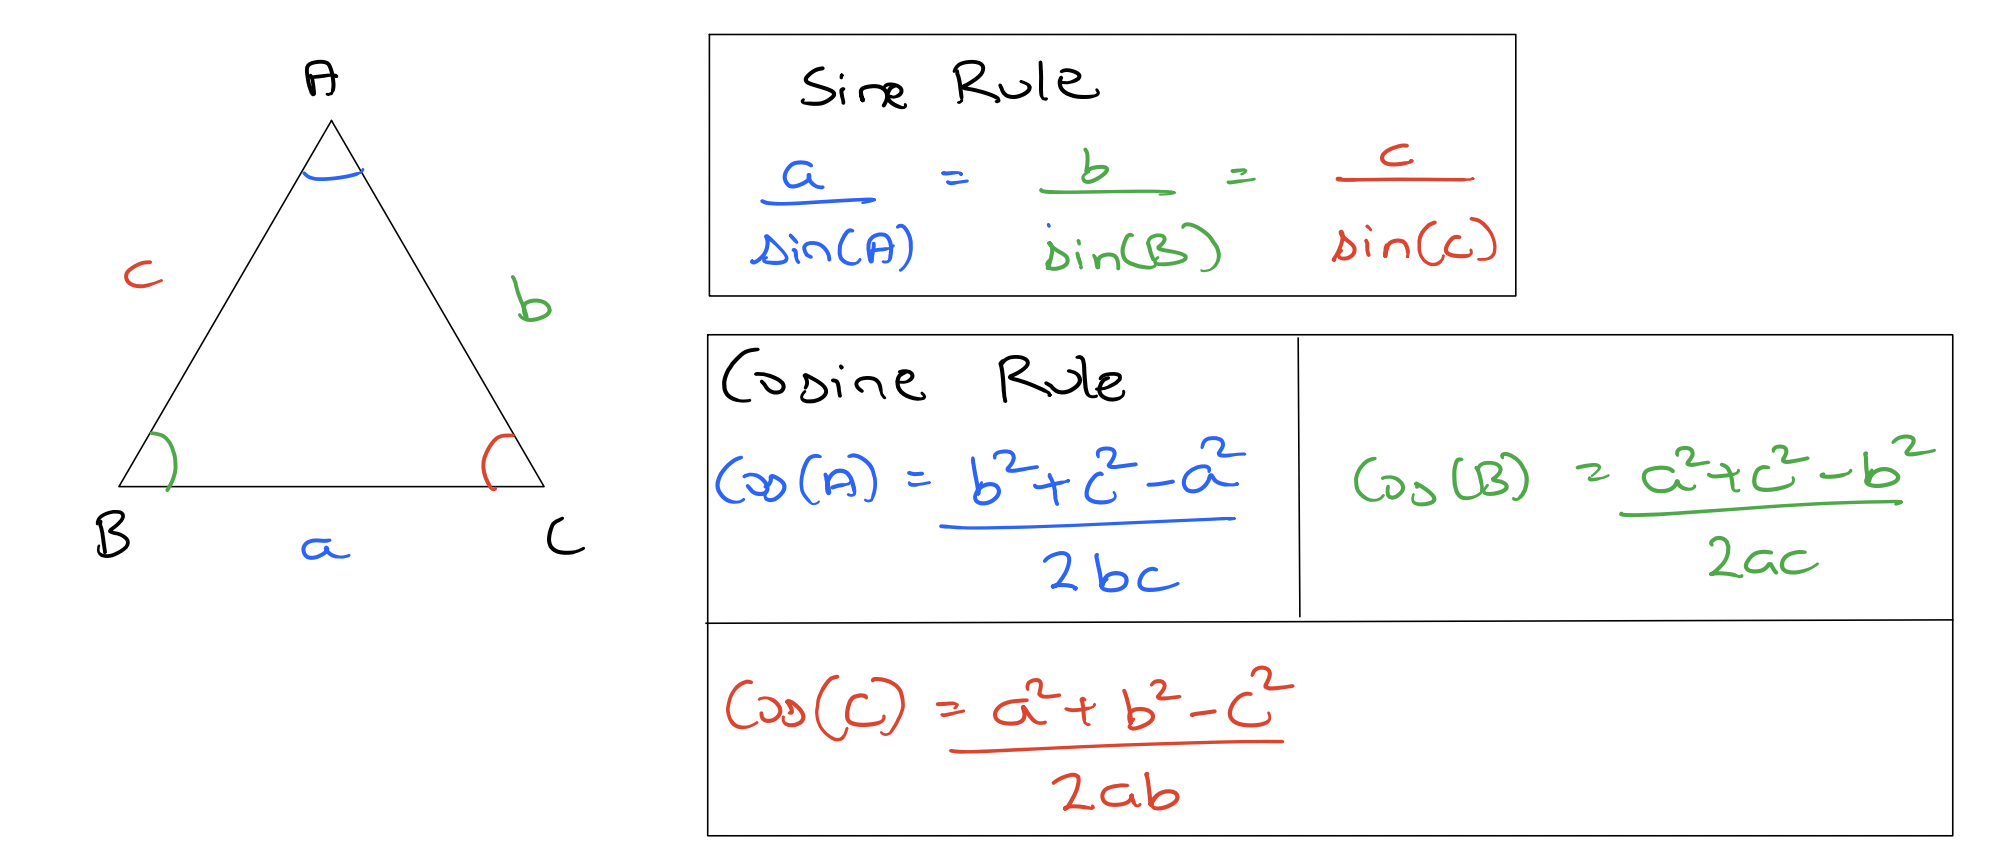 A
c
b
B
a
C
Sine Rule
a/sin(A) = b/sin(B) = c/sin(C)
Cosine Rule
Cos(A) = b²+c²-a²/2bc
Cos(B) = a²+c²-b²/2ac
Cos(C) = a²+b²-c²/2ab